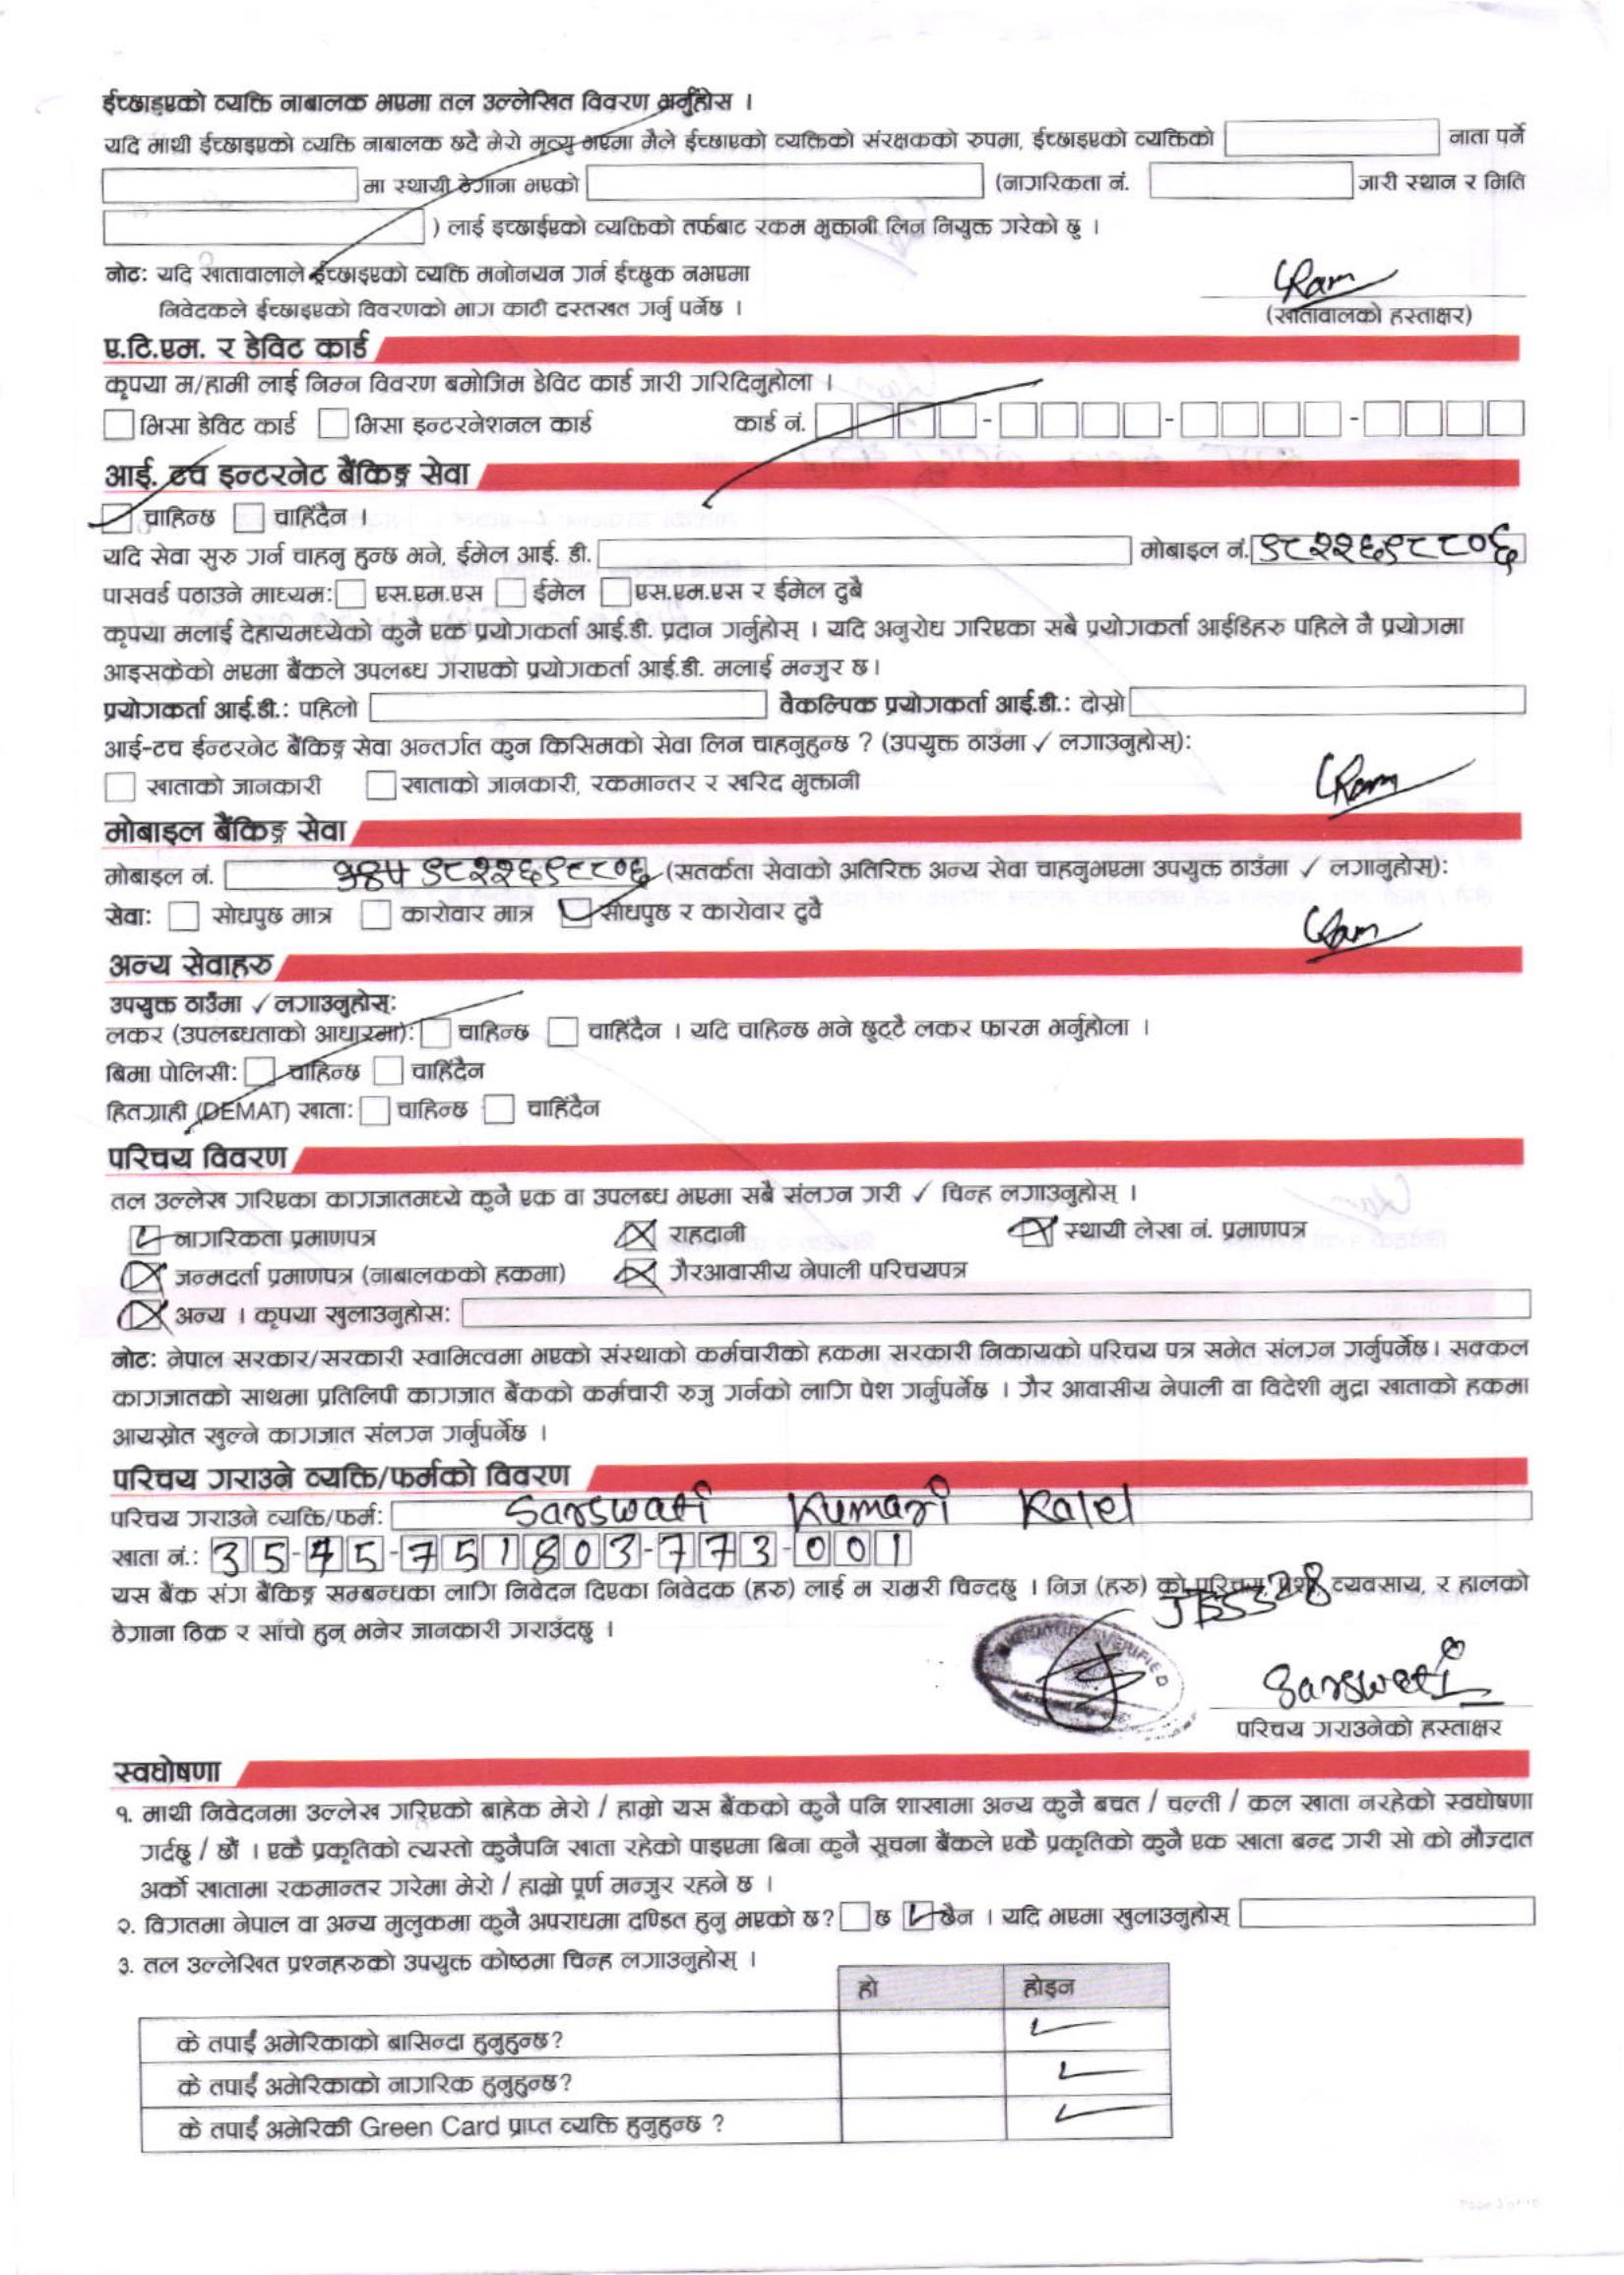 ईच्छाइएको व्यक्ति नाबालक भएमा तल उल्लेखित विवरण भर्नुहोस ।
यदि माथी ईच्छाइएको व्यक्ति नाबालक छदै मेरो मृत्यु भएमा मैले ईच्छाएको व्यक्तिको संरक्षकको रुपमा, ईच्छाइएको व्यक्तिको नाता पर्ने
मा स्थायी ठेगाना भएको (नागरिकता नं. जारी स्थान र मिति
) लाई इच्छाईएको व्यक्तिको तर्फबाट रकम भुक्तानी लिन नियुक्त गरेको छु ।
नोट: यदि खातावालाले ईच्छाइएको व्यक्ति मनोनयन गर्न ईच्छुक नभएमा
निवेदकले ईच्छाइएको विवरणको भाग काटी दस्तखत गर्नु पर्नेछ ।
Ram
(खातावालको हस्ताक्षर)
ए.टि.एम. र डेविट कार्ड
कृपया म/हामी लाई निम्न विवरण बमोजिम डेविट कार्ड जारी गरिदिनुहोला ।
भिसा डेविट कार्ड भिसा इन्टरनेशनल कार्ड कार्ड नं. - - -
आई. टच इन्टरनेट बैंकिङ्ग सेवा
चाहिन्छ चाहिँदैन ।
यदि सेवा सुरु गर्न चाहनु हुन्छ भने, ईमेल आई. डी. मोबाइल नं. ९८२२६९८८०६
पासवर्ड पठाउने माध्यम: एस.एम.एस ईमेल एस.एम.एस र ईमेल दुबै
कृपया मलाई देहायमध्येको कुनै एक प्रयोगकर्ता आई.डी. प्रदान गर्नुहोस् । यदि अनुरोध गरिएका सबै प्रयोगकर्ता आईडिहरु पहिले नै प्रयोगमा
आइसकेको भएमा बैंकले उपलब्ध गराएको प्रयोगकर्ता आई.डी. मलाई मन्जुर छ।
प्रयोगकर्ता आई.डी.: पहिलो वैकल्पिक प्रयोगकर्ता आई.डी.: दोस्रो
आई-टच ईन्टरनेट बैंकिङ्ग सेवा अन्तर्गत कुन किसिमको सेवा लिन चाहनुहुन्छ ? (उपयुक्त ठाउँमा ✓ लगाउनुहोस्):
खाताको जानकारी खाताको जानकारी, रकमान्तर र खरिद भुक्तानी
Ram
मोबाइल बैंकिङ्ग सेवा
मोबाइल नं. ९८२२६९८८०६ (सतर्कता सेवाको अतिरिक्त अन्य सेवा चाहनुभएमा उपयुक्त ठाउँमा ✓ लगानुहोस्):
सेवा: सोधपुछ मात्र कारोवार मात्र सोधपुछ र कारोवार दुवै
Ram
अन्य सेवाहरु
उपयुक्त ठाउँमा ✓ लगाउनुहोस्:
लकर (उपलब्धताको आधारमा): चाहिन्छ चाहिँदैन । यदि चाहिन्छ भने छुट्टै लकर फारम भर्नुहोला ।
बिमा पोलिसी: चाहिन्छ चाहिँदैन
हितग्राही (DEMAT) खाता: चाहिन्छ चाहिँदैन
परिचय विवरण
तल उल्लेख गरिएका कागजातमध्ये कुनै एक वा उपलब्ध भएमा सबै संलग्न गरी ✓ चिन्ह लगाउनुहोस् ।
नागरिकता प्रमाणपत्र राहदानी स्थायी लेखा नं. प्रमाणपत्र
जन्मदर्ता प्रमाणपत्र (नाबालकको हकमा) गैरआवासीय नेपाली परिचयपत्र
अन्य । कृपया खुलाउनुहोस:
नोट: नेपाल सरकार/सरकारी स्वामित्वमा भएको संस्थाको कर्मचारीको हकमा सरकारी निकायको परिचय पत्र समेत संलग्न गर्नुपर्नेछ। सक्कल
कागजातको साथमा प्रतिलिपी कागजात बैंकको कर्मचारी रुजु गर्नको लागि पेश गर्नुपर्नेछ । गैर आवासीय नेपाली वा विदेशी मुद्रा खाताको हकमा
आयस्रोत खुल्ने कागजात संलग्न गर्नुपर्नेछ ।
परिचय गराउने व्यक्ति/फर्मको विवरण
परिचय गराउने व्यक्ति/फर्म: Sarswati Kumari Kalel
खाता नं.: 35-45-751803-773-001
यस बैंक संग बैंकिङ्ग सम्बन्धका लागि निवेदन दिएका निवेदक (हरु) लाई म राम्ररी चिन्दछु । निज (हरु) को परिचय, पेशा, व्यवसाय, र हालको
JBS328
ठेगाना ठिक र साँचो हुन् भनेर जानकारी गराउँदछु ।
VERIFIED
Sarswati
परिचय गराउनेको हस्ताक्षर
स्वघोषणा
१. माथी निवेदनमा उल्लेख गरिएको बाहेक मेरो / हाम्रो यस बैंकको कुनै पनि शाखामा अन्य कुनै बचत / चल्ती / कल खाता नरहेको स्वघोषणा
गर्दछु / छौं । एकै प्रकृतिको त्यस्तो कुनैपनि खाता रहेको पाइएमा बिना कुनै सूचना बैंकले एकै प्रकृतिको कुनै एक खाता बन्द गरी सो को मौज्दात
अर्को खातामा रकमान्तर गरेमा मेरो / हाम्रो पूर्ण मन्जुर रहने छ ।
२. विगतमा नेपाल वा अन्य मुलुकमा कुनै अपराधमा दण्डित हुनु भएको छ? छ छैन । यदि भएमा खुलाउनुहोस्
३. तल उल्लेखित प्रश्नहरुको उपयुक्त कोष्ठमा चिन्ह लगाउनुहोस् ।
हो होइन
के तपाईं अमेरिकाको बासिन्दा हुनुहुन्छ?
के तपाईं अमेरिकाको नागरिक हुनुहुन्छ?
के तपाईं अमेरिकी Green Card प्राप्त व्यक्ति हुनुहुन्छ ?